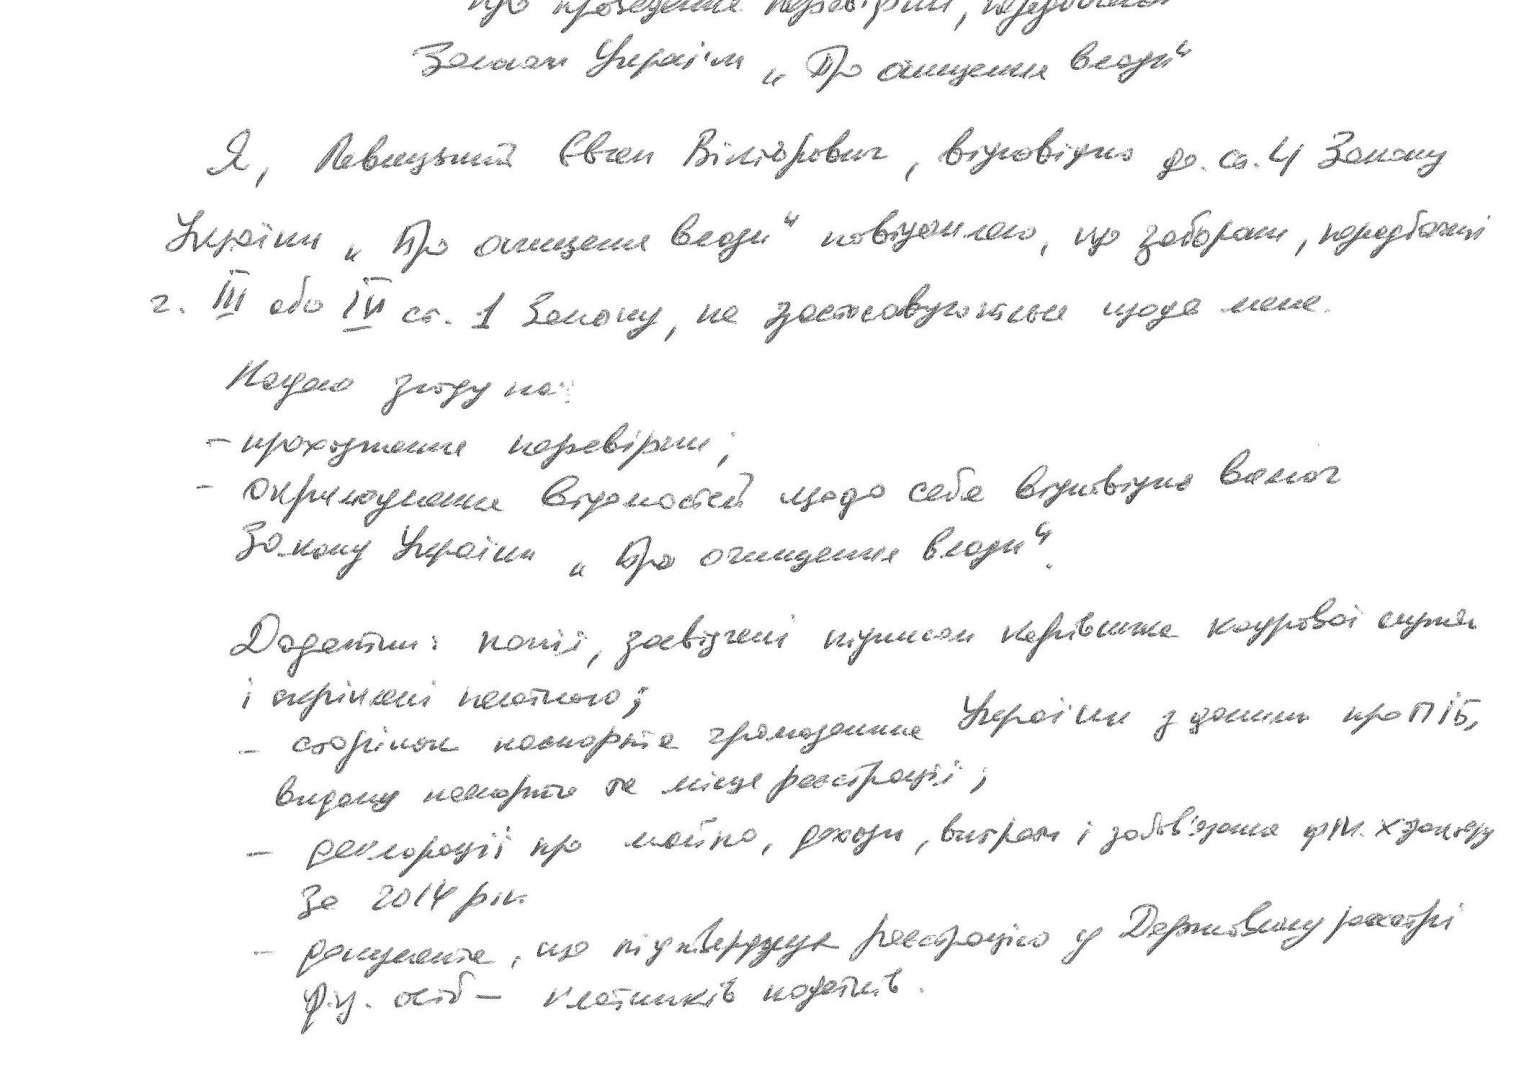 про проведення перевірки, передбаченої
Законом України „Про очищення влади“
Я, Левицький Євген Вікторович, відповідно до ст. 4 Закону
України „Про очищення влади“ повідомляю, що заборони, передбачені
ч. III або IV ст. 1 Закону, не застосовуються щодо мене.
Надаю згоду на:
– проходження перевірки;
– оприлюднення відомостей щодо себе відповідно вимог
Закону України „Про очищення влади“.
Додатки: копії, засвідчені підписом керівника кадрової служби
і скріплені печаткою;
– сторінок паспорта громадянина України з даними про ПІБ,
видачу паспорта та місце реєстрації;
– декларації про майно, доходи, витрати і зобов'язання фін. х-ктеру
за 2014 рік
– документа, що підтверджує реєстрацію у Державному реєстрі
фіз. осіб – платників податків.